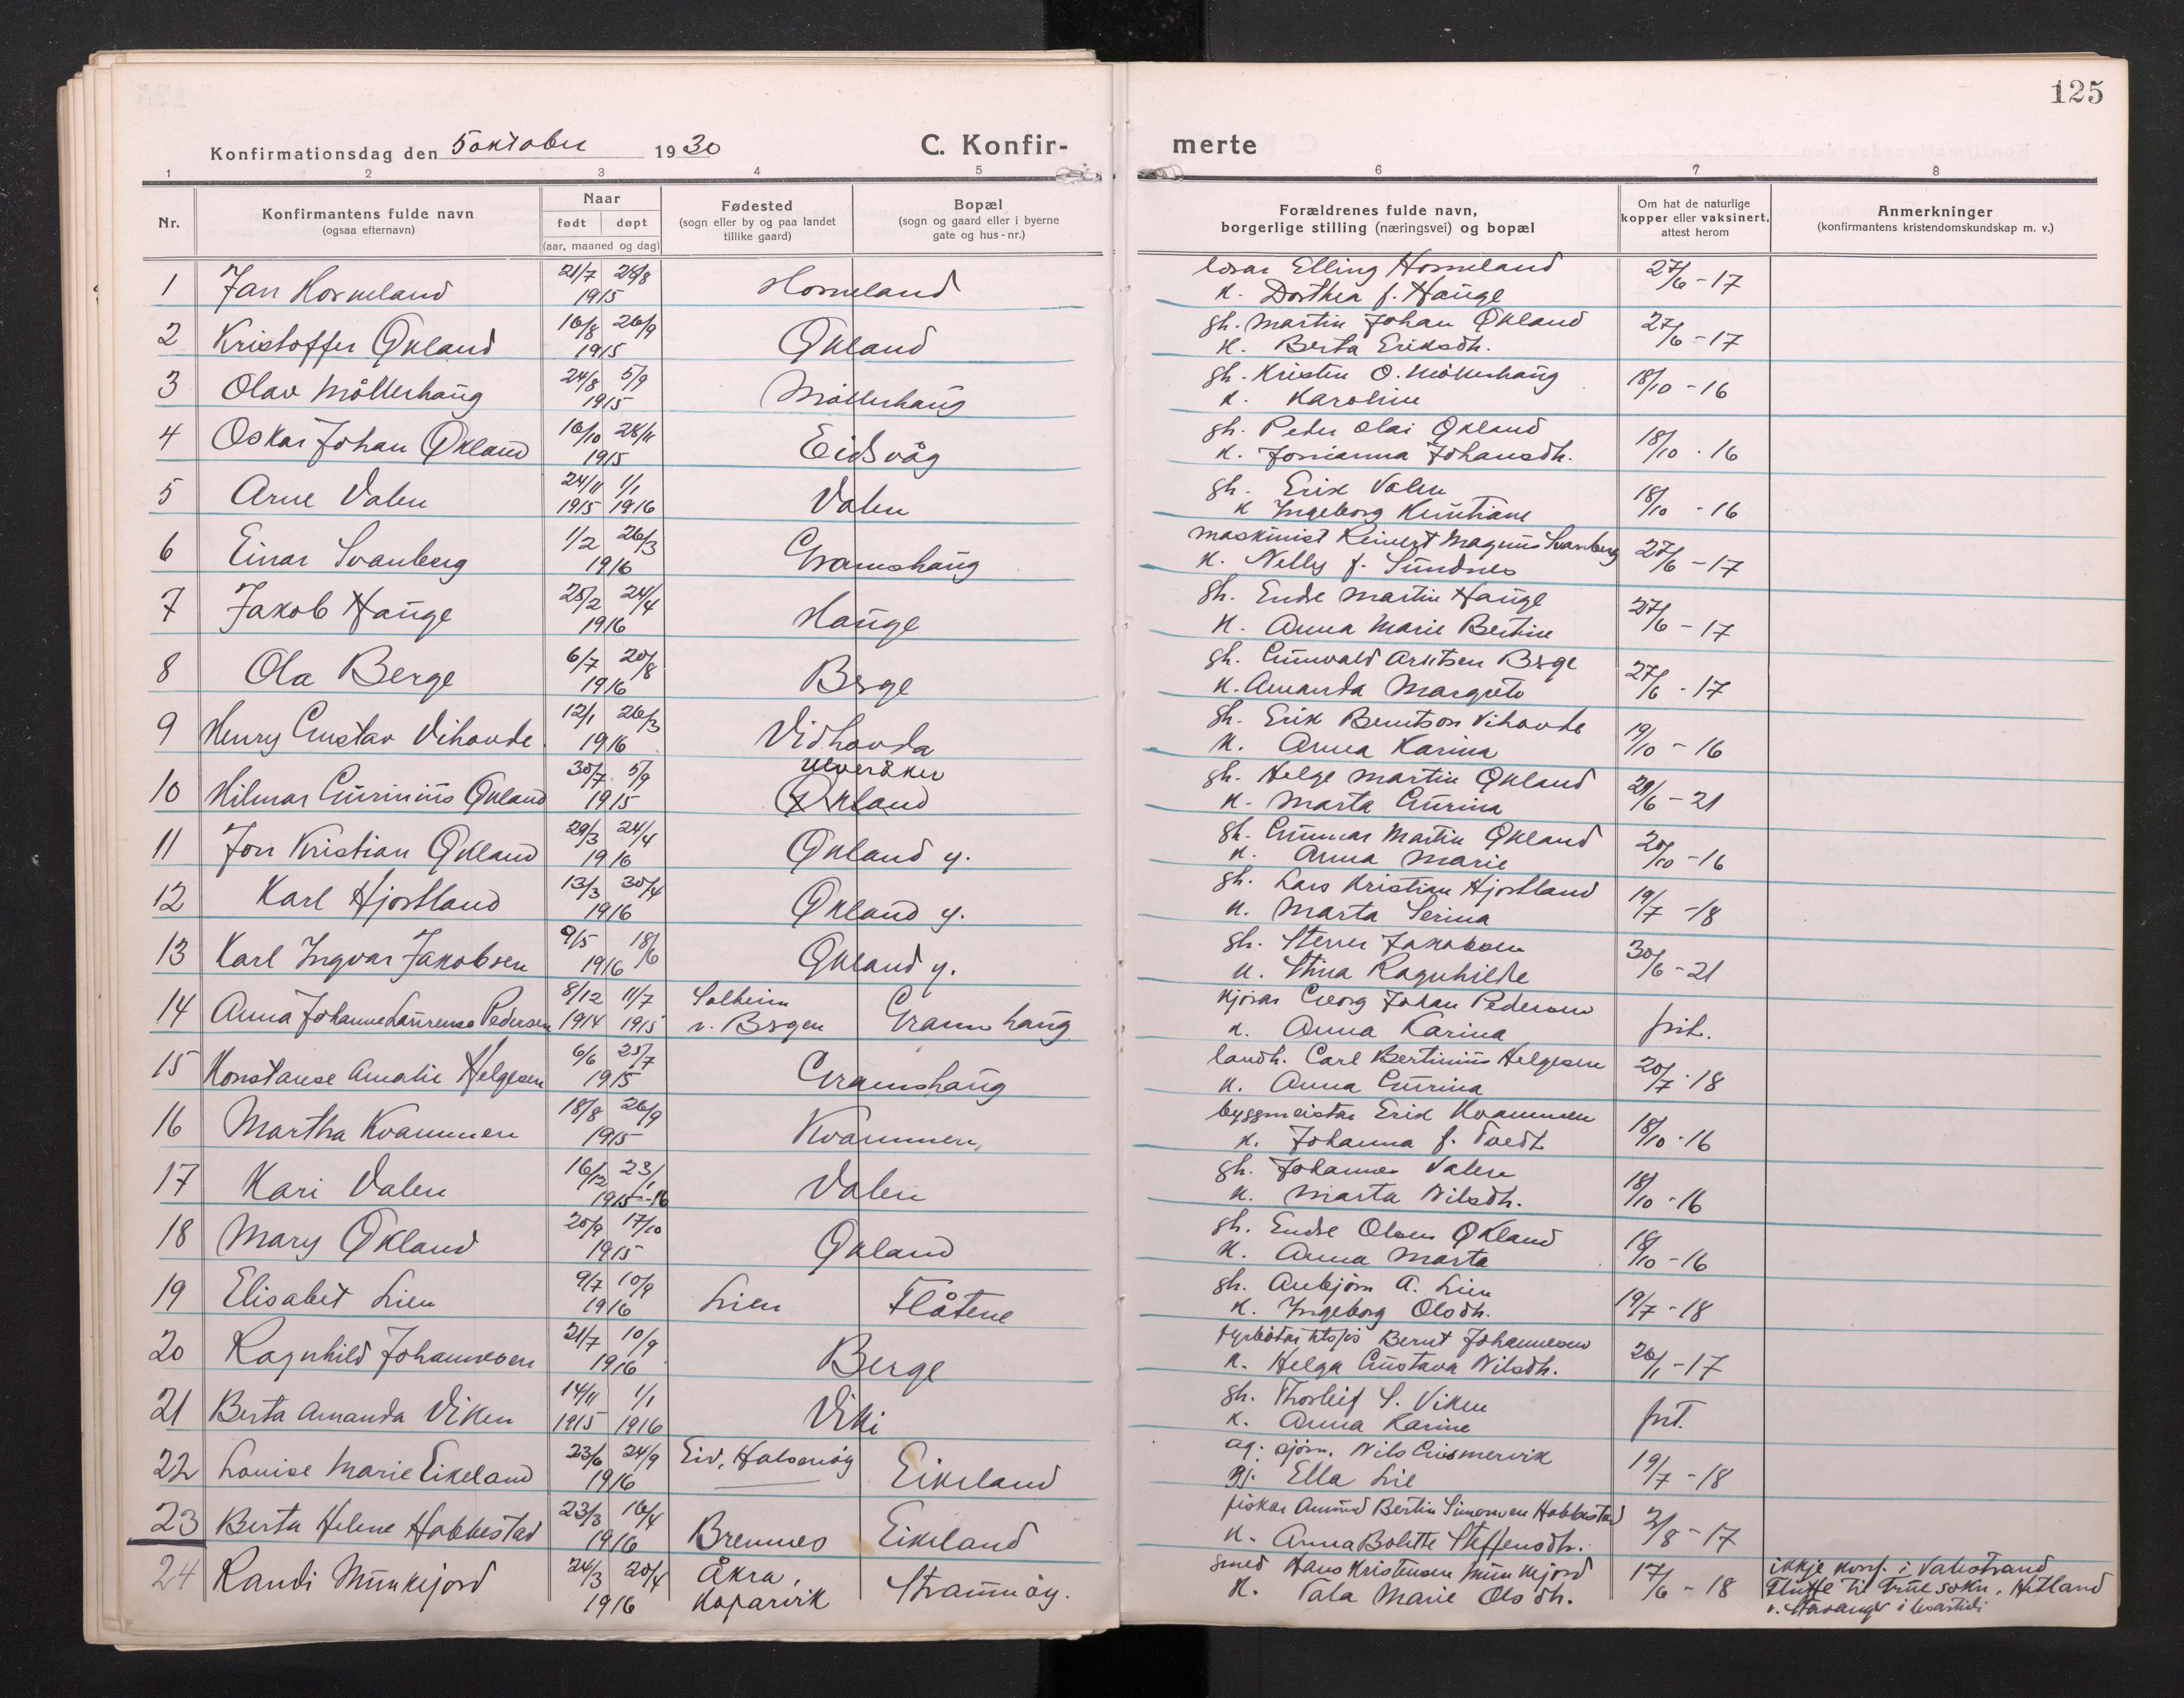 125
Konfirmationsdag den 5 oktober 1930
C. Konfir-
merte
1 2 3 4 5 6 7 8
Nr.
Konfirmantens fulde navn
(ogsaa efternavn)
Naar
født døpt
(aar, maaned og dag)
Fødested
(sogn eller by og paa landet
tillike gaard)
Bopæl
(sogn og gaard eller i byerne
gate og hus-nr.)
Forældrenes fulde navn,
borgerlige stilling (næringsvei) og bopæl
Om hat de naturlige
kopper eller vaksinert,
attest herom
Anmerkninger
(konfirmantens kristendomskundskap m. v.)
1 Jan Horneland 21/7 28/8 1915 Horneland
lærar Elling Horneland 27/6 - 17
k. Dorthea f. Hauge
2 Kristoffer Økland 16/8 26/9 1915 Økland
gh. Martin Johan Økland 27/6 - 17
k. Berta Eriksdh.
3 Olav Møllerhaug 24/8 5/9 1915 Møllerhaug
gh. Kristen O. Møllerhaug 18/10 - 16
k. Karoline
4 Oskar Johan Økland 16/10 28/11 1915 Eidsvåg
gh. Peder Olai Økland 18/10 - 16
k. Johansdh.
5 Arne Valen 24/11 1/1 1915 1916 Valen
gh. Erik Valen 18/10 - 16
k Ingeborg Kristiane
6 Einar Svanberg 1/2 26/3 1916 Gramshaug
maskinist Reinert Magnus Svanberg 27/6 - 17
k. Nelly f. Sundnes
7 Jakob Hauge 25/2 24/4 1916 Hauge
gh. Endre Martin Hauge 27/6 - 17
k. Anna Marie Bertine
8 Ola Berge 6/7 20/8 1916 Berge
gh. Gunvald Berge 27/6 - 17
k. Amanda Margrete
9 Henry Gustav Vihovde 12/1 26/3 1916 Vidhovda
gh. Erik Berntson Vihovde 19/10 - 16
k. Anna Karina
10 Hilmar Gurinius Økland 30/7 5/9 1915 Ulveråker
Økland
gh. Helge Martin Økland 29/6 - 21
k. Marta Gurina
11 Jon Kristian Økland 29/3 24/4 1916 Økland y.
gh. Gunnar Martin Økland 20/10 - 16
k. Anna Marie
12 Karl Hjortland 13/3 30/4 1916 Økland y.
gh. Lars Kristian Hjortland 19/7 - 18
k. Marta Serina
13 Karl Ingvar Jakobsen 9/5 18/6 1916 Økland y.
gh. Jakobsen 30/6 - 21
k. Stina Ragnhilde
14 Anna Johanne Laurense Pedersen 8/12 11/7 1914 1915 Solheim
v. Bergen Gramshaug
Georg Johan Pedersen prit.
k. Anna Karina
15 Konstanse Amalie Helgesen 6/6 25/7 1915 Gramshaug
landh. Carl Bertinius Helgesen 20/7 - 18
k. Anna Gurina
16 Martha Kvammen 18/8 26/9 1915 Kvammen
byggmeistar Erik Kvammen 18/10 - 16
k. Johanna f. Tvedt
17 Kari Valen 16/12 23/1 1915 - 16 Valen
gh. Johannes Valen 18/10 - 16
k. Marta Nilsdh.
18 Mary Økland 20/9 17/10 1915 Økland
gh. Endre Olsen Økland 18/10 - 16
k. Anna Marta
19 Elisabet Lien 9/7 10/9 1916 Lien Flåtene
gh. Anbjørn A. Lien 19/7 - 18
k. Ingeborg Olsdh.
20 Ragnhild Johannesen 21/7 10/9 1916 Berge
fyrbøtar Bernt Johannesen 26/1 - 17
k. Helga Gustava Nilsdh.
21 Berta Amanda Viken 14/11 1/1 1915 1916 Viki
gh. Thorleif S. Viken prit.
k. Anna Karine
22 Louise Marie Eikeland 23/6 24/9 1916 Eid, Halsnøy Eikeland
ug. sjøm. Nils Gismervik 19/7 - 18
pj. Ella Lie
23 Berta Helene Habbestad 23/3 16/4 1916 Bremnes Eikeland
fiskar Amund Bertin Simonsen Habbestad 2/8 - 17
k. Anna Bolette Steffensdh.
24 Randi Munkejord 24/3 20/4 1916 Åkra,
Kopervik Straumøy.
smed Hans Kristensen Munkejord 17/6 - 18
k. Tala Marie Olsdh.
ikkje konf. i Valestrand
Flutte til sokn, Hetland
v. Stavanger i